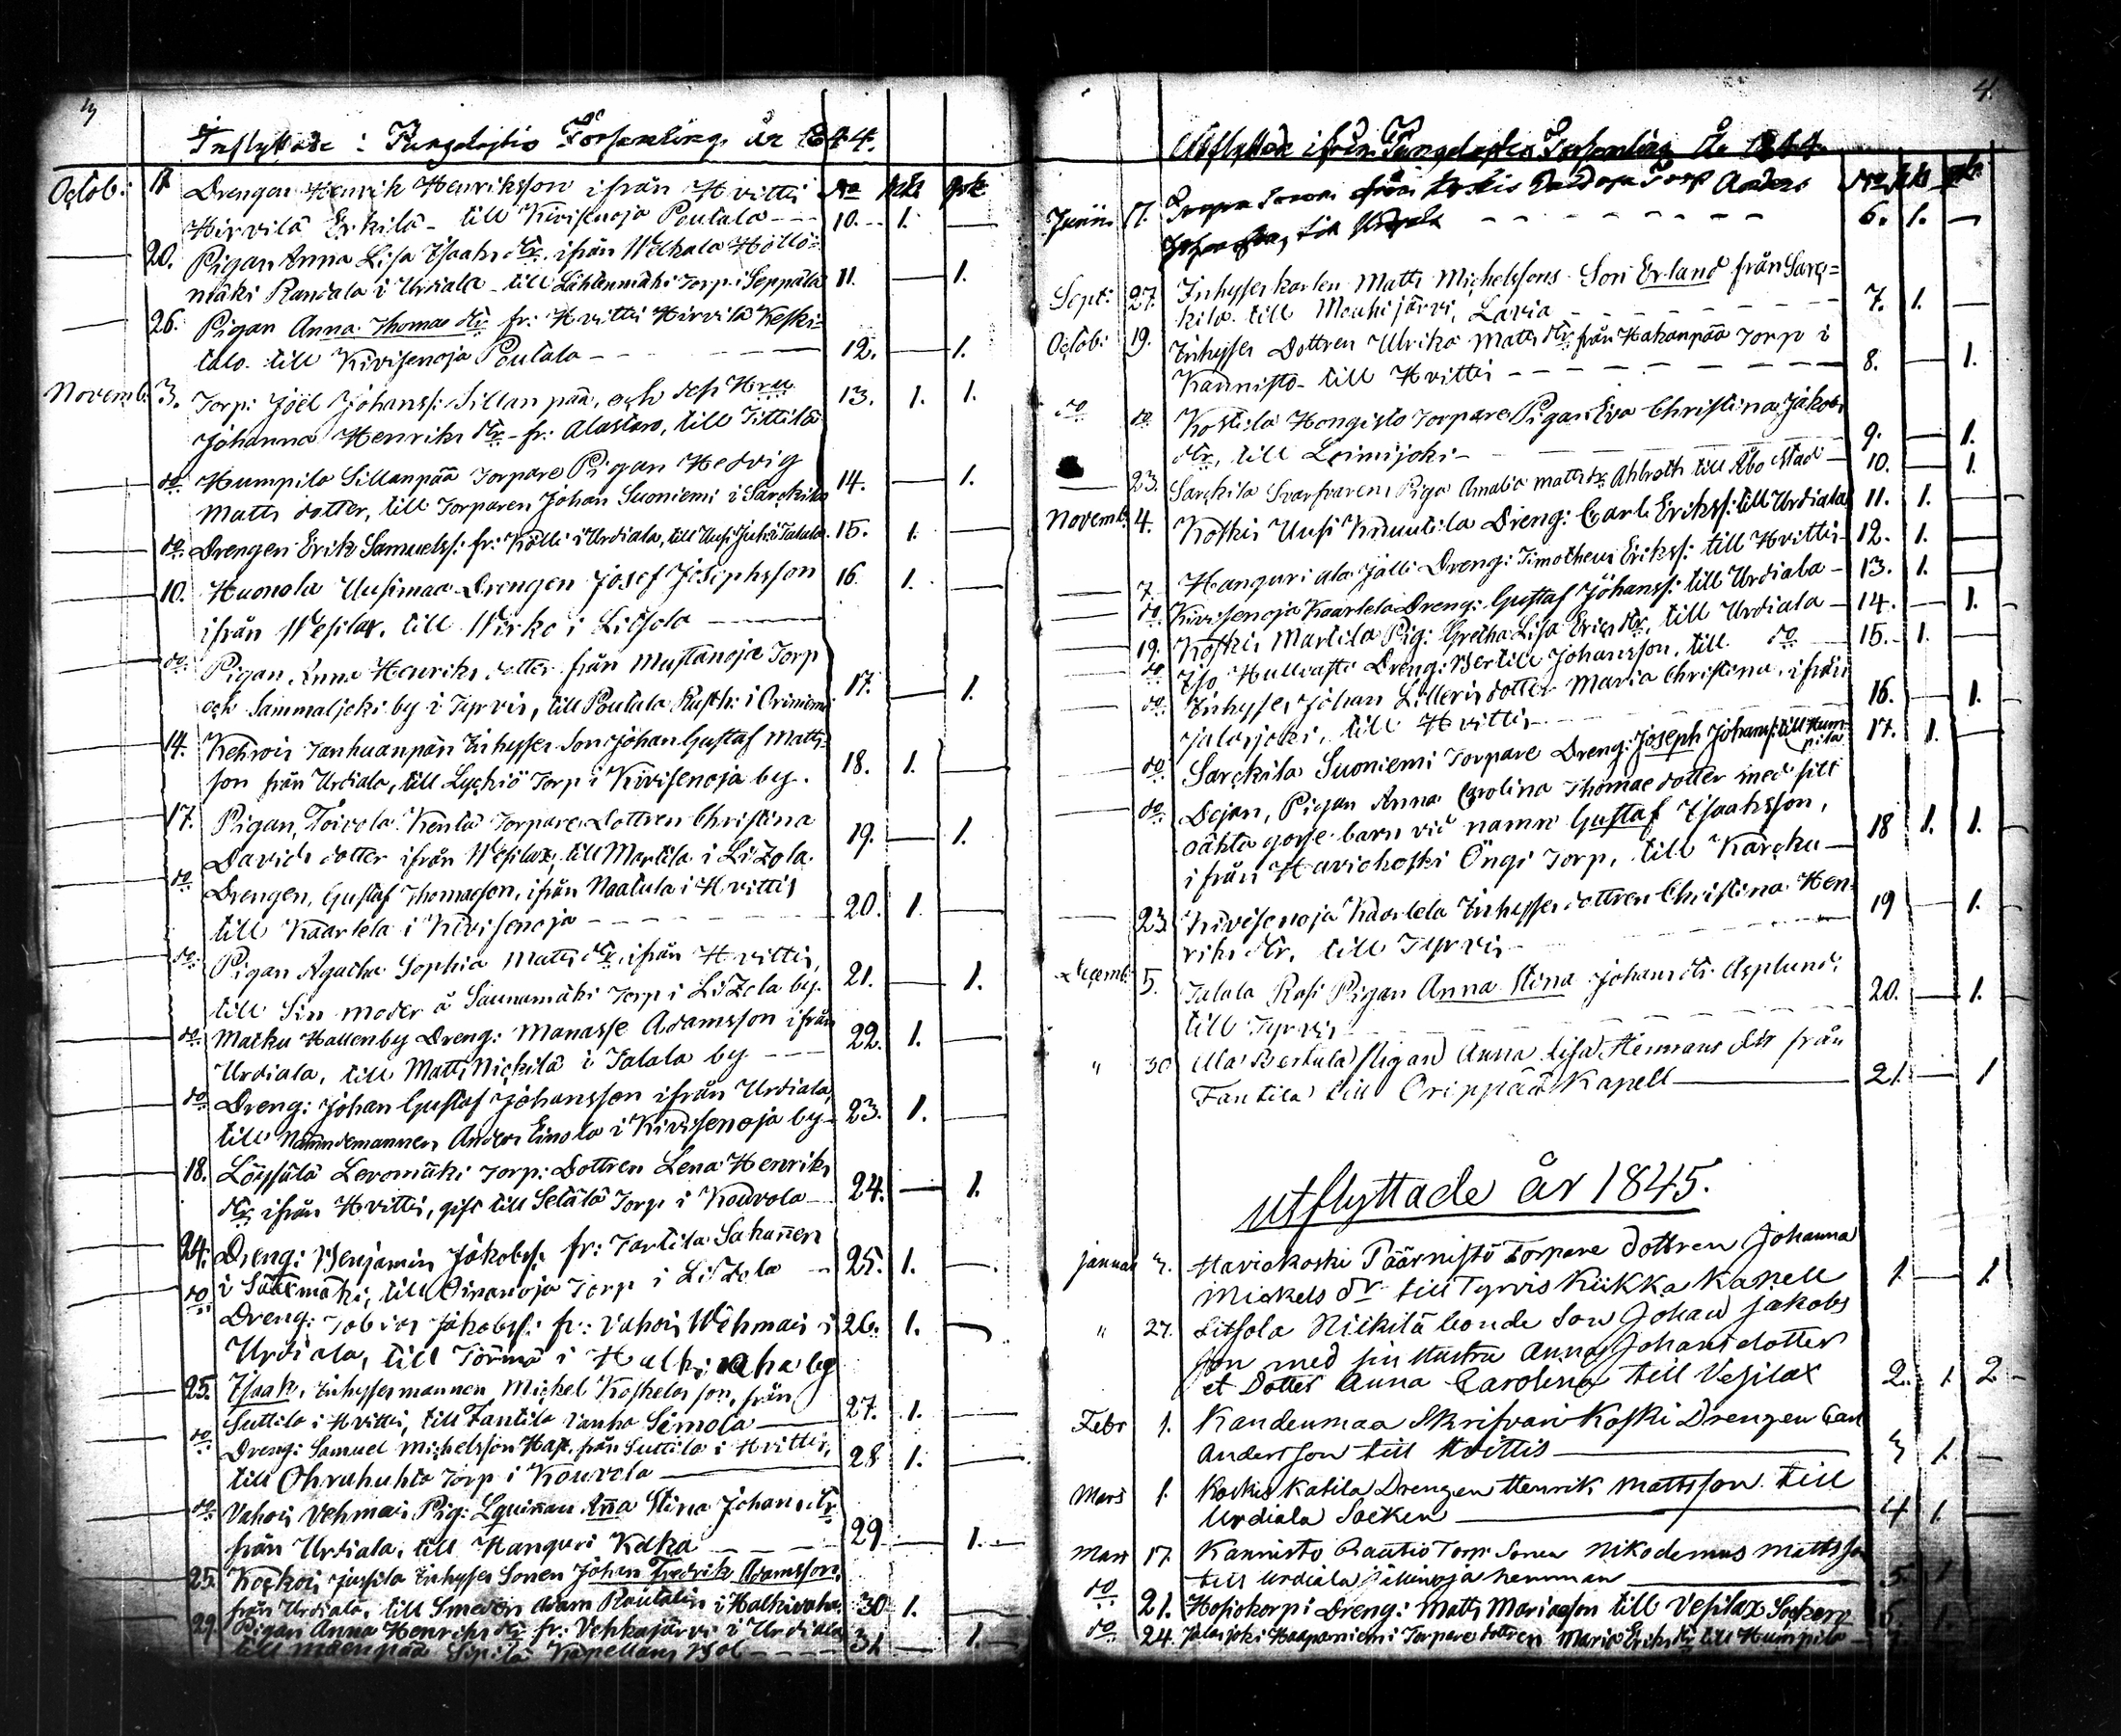 3
Inflyttade i Pungalaitio Forsamling år 1844.
No mk qk
Octob: 17 Drengen Henrik Henriksson ifrån Hvittis
Hirvilä Erkilä - till Kivisenoja Poutala - - - 10. 1. —
— 20. Pigan Anna Lisa Isaaks dtr. ifrån Welhala Höllö=
mäki Randala i Urdiala - till Lähtenmäki Torp i Seppälä 11. — 1.
— 26. Pigan Anna Thomae dtr fr: Hvittis Hirvilä Keski=
talo till Kivisenoja Poutala - - - 12. — 1.
Novemb. 3. Torp: Joël Johanss: Sillanpää, och dess Hru 13. 1. 1.
Johanna Henriks dtr - fr: Alastaro, till Tittilä
— do Humpila Sillanpää Torpare Pigan Hedvig
Matts dotter, till Torparen Johan Suoniemi i Sarckila 14. — 1.
— do Drengen Erik Samuelss: fr: Kölli i Urdiala, till Uusi Juhi Talala. 15. 1. —
— 10. Huonola Uusimaa Drengen Josef Josephsson 16. 1. —
ifrån Wesilax. till Wirko i Litsola —
— do Pigan Anna Henriks dotter från Mustanoja Torp
och Sammaljoki by i Tyrvis, till Poutala Rusth: i Oriniemi 17. — 1.
— 14. Kehrois Tanhuanpän Inhyses Son Johan Gustaf Matts=
son från Urdiala, till Lyckiö Torp i Kivisenoja by. 18. 1. —
— 17. Pigan, Toivola Kentä Torpare Dottren Christina
Davids dotter ifrån Wesilax, till Martila i Litzola. 19. — 1.
— do Drengen, Gustaf Thomasson, ifrån Naatula i Hvittis
till Kaarlela i Kivisenoja - - - 20. 1. —
— do Pigan Agatha Sophia Matts dtr. ifrån Hvittis,
till Sin moder å Saunamäki Torp i Litzola by. 21. — 1.
— do Matku Hallenby Dreng: Manasse Adamsson ifrån
Urdiala, till Matts Nickilä i Talala by - - - 22. 1. —
— do Dreng: Johan Gustaf Johansson ifrån Urdiala,
till Nämndemannen Anders Einola i Kivisenoja by - 23. 1. —
— 18. Löyssälä Levomäki Torp: Dottren Lena Henriks
dtr ifrån Hvittis, gift till Setälä Torp i Kouvola — 24. — 1.
— 24. Dreng: Benjamin Jakobss: fr: Tantila Sahanen
i Säkxmäki, till Oinanoja Torp i Litzola — 25. 1. —
— do Dreng: Tobias Jakobss: fr: Vahois Wehmais i
Urdiala, till Törmä i Halkivaha by 26. 1. —
— 25. Isaak, Inhysesmannen, Michel Koskelas son, från
Suttila i Hvittis, till Tantila Vanha Simola — 27. 1. —
— do Dreng: Samuel Michelsson Hag. från Suttila i Hvittis,
till Ohrahuhta Torp i Kouvola — 28 1. —
— do Vahois Vehmais Pig: Lquinnan Anna Stina Johans dtr.
från Urdiala, till Hanguri Kolka - - - 29 — 1.
— 25. Kockois Jussila Inhyses Sonen Johan Fredrik Adamsson,
från Urdiala, till Smeden Adam Rautalin i Halkivaha 30 1. —
— 29. Pigan Anna Henriks dtr fr: Vehkajärvi i Urdiala
till Mäenpää Sipilä Kapellans Bol - - - 31 — 1.
4.
Utflyttade ifrån Pungalaitio Forsamling År 1844
No mk qk
Junii 17. Drgen Sonen från Koskis Torp Anders
Johansson, till 6. 1. —
Sept: 27. Inhyses karlen Matts Michelssons Son Erland från Sarc=
kila till Mouhijärvi, Lavia - - - 7. 1. —
Octob: 19. Inhyses Dottren Ulrika Matts dtr från Hakanpää Torp i
Kannisto - till Hvittis - - - 8. — 1.
do do Kostila Hongisto Torpare Pigan Eva Christina Jakobs
dtr, till Loimijoki - 9. — 1.
— 23. Sarckila Svarfvarens Piga Amalia Matts dr. Ahlroth till Åbo Stad — 10. — 1.
Novemb: 4. Koskis Uusi Knuutila Dreng: Carl Erikss: till Urdiala 11. 1. —
— 7. Hanguri ala Jalli Dreng: Timotheus Erikss: till Hvittis - 12. 1. —
— do Kivisenoja Kaarlela Dreng: Gustaf Johanss: till Urdiala - 13. 1. —
— 19. Koskis Martila Pig: Gretha Lisa Erics dtr, till Urdiala — 14. — 1.
— do Iso Hullvasti Dreng: Bertill Johansson, till do — 15. 1. —
— do Inhyses Johan Lilleris dotter Maria Christina, ifrån
Jalasjoki, till Hvittis - 16. — 1.
— do Sarckila Suoniemi Torpare Dreng: Joseph Johanss: till Hum=
pila 17. 1. —
— do Dejan, Pigan Anna Carolina Thomae dotter med sitt
oäkta gosse barn vid namn Gustaf Isaaksson,
ifrån Haviokoski Öngi Torp, till Karcku — 18 1. 1.
— 23. Kivisenoja Kaarlela Inhyses dottren Christina Hen=
riks dtr, till Tyrvis - 19 — 1.
Decemb: 5. Talala Rasi Pigan Anna Stina Johans dtr Asplund,
till Tyrvis - - - 20. — 1.
" 30 Ala Bertula Pigan Anna Lisa Hermans dtr från
Tantila till Orippää Kapell — 21 — 1
Utflyttade år 1845.
Januari 3. Haviokoski Päärnistö Torpare dottren Johanna
Mickels dr till Tyrvis Kiikka Kapell 1. — 1.
" 27. Litsola Nickilä bonde Son Johan Jakobs
son med sin Hustru Anna Johansdotter
et Dotter Anna Carolina till Vesilax 2. 1. 2 -
Febr 1. Kandenmaa Skrifvari Koski Drengen Carl
Andersson till Hvittis — 3 1. —
Mars 1. Koskis Katila Drengen Henrik Mattsson till
Urdiala Socken — 4 1. —
Mars 17. Kannisto Rautio Torp: Sonen Nikodemus Mattsson
till Urdiala hemman — 5. 1
do 21. Hosiokorpi Dreng: Matts Mariasson till Vesilax Socken 6. 1.
do 24. Jalasjoki Haapaniemi Torpare dottren Maria Eriks dtr till Humpila